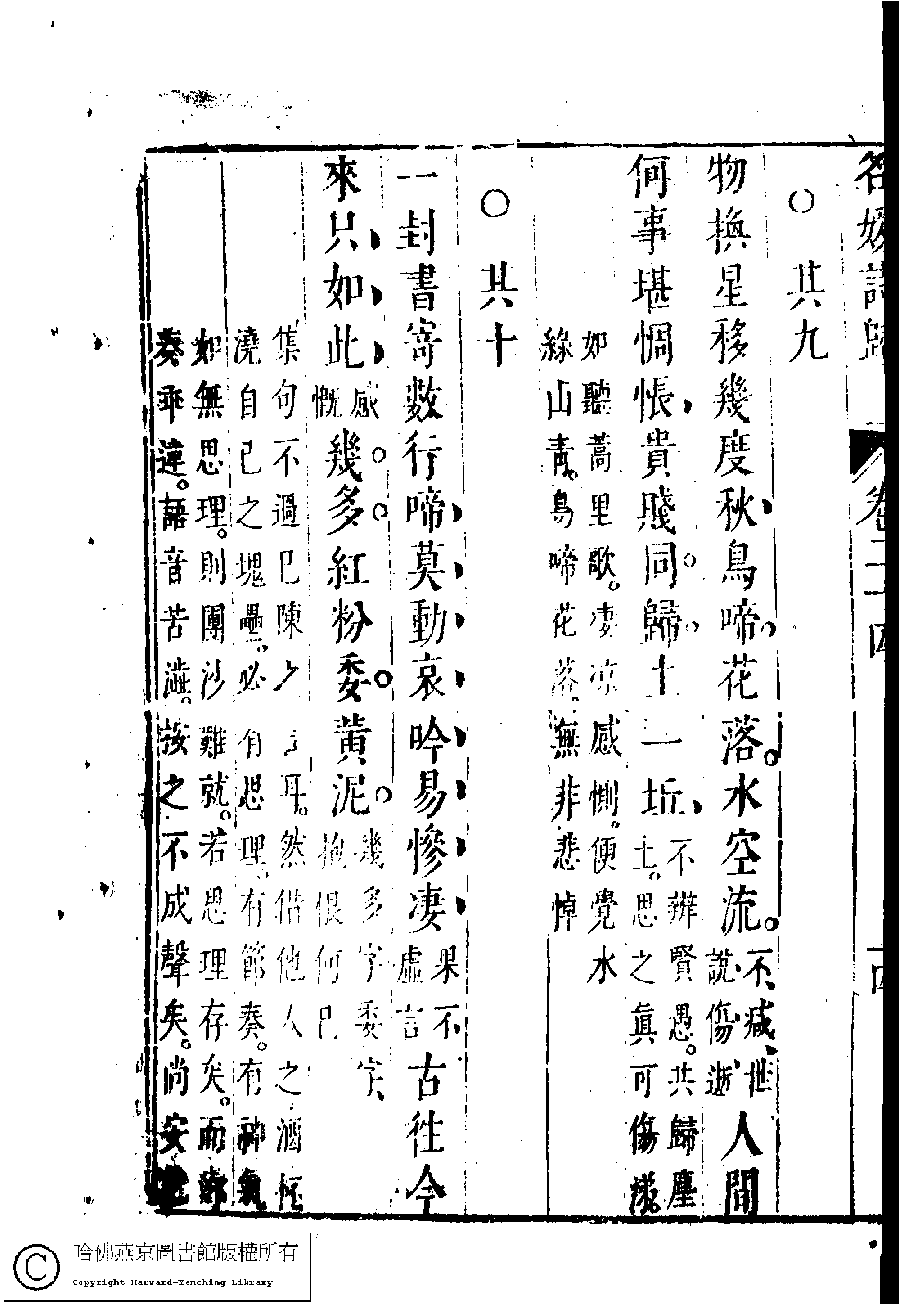 名媛詩歸 卷二十四 十四
○其九
物換星移幾度秋鳥啼花落水空流不感世說傷逝人間
何事堪惆悵貴賤同歸土一坵不辨賢愚共歸塵土思之真可傷嘆
如聽蒿里歌凄凉感惻便覺水
綠山青鳥啼花落無非悲悼
○其十
一封書寄數行啼莫動哀吟易慘凄果不虛言古往今
來只如此感慨幾多紅粉委黃泥幾多字委字抱恨何已
集句不過已陳之言耳然借他人之酒杯
澆自己之塊壘必有思理有節奏有神氣
如無思理則團沙難就若思理存矣而節
奏乖違語音苦澁按之不成聲矣尚安
哈佛燕京圖書館版權所有
Copyright Harvard-Yenching Library